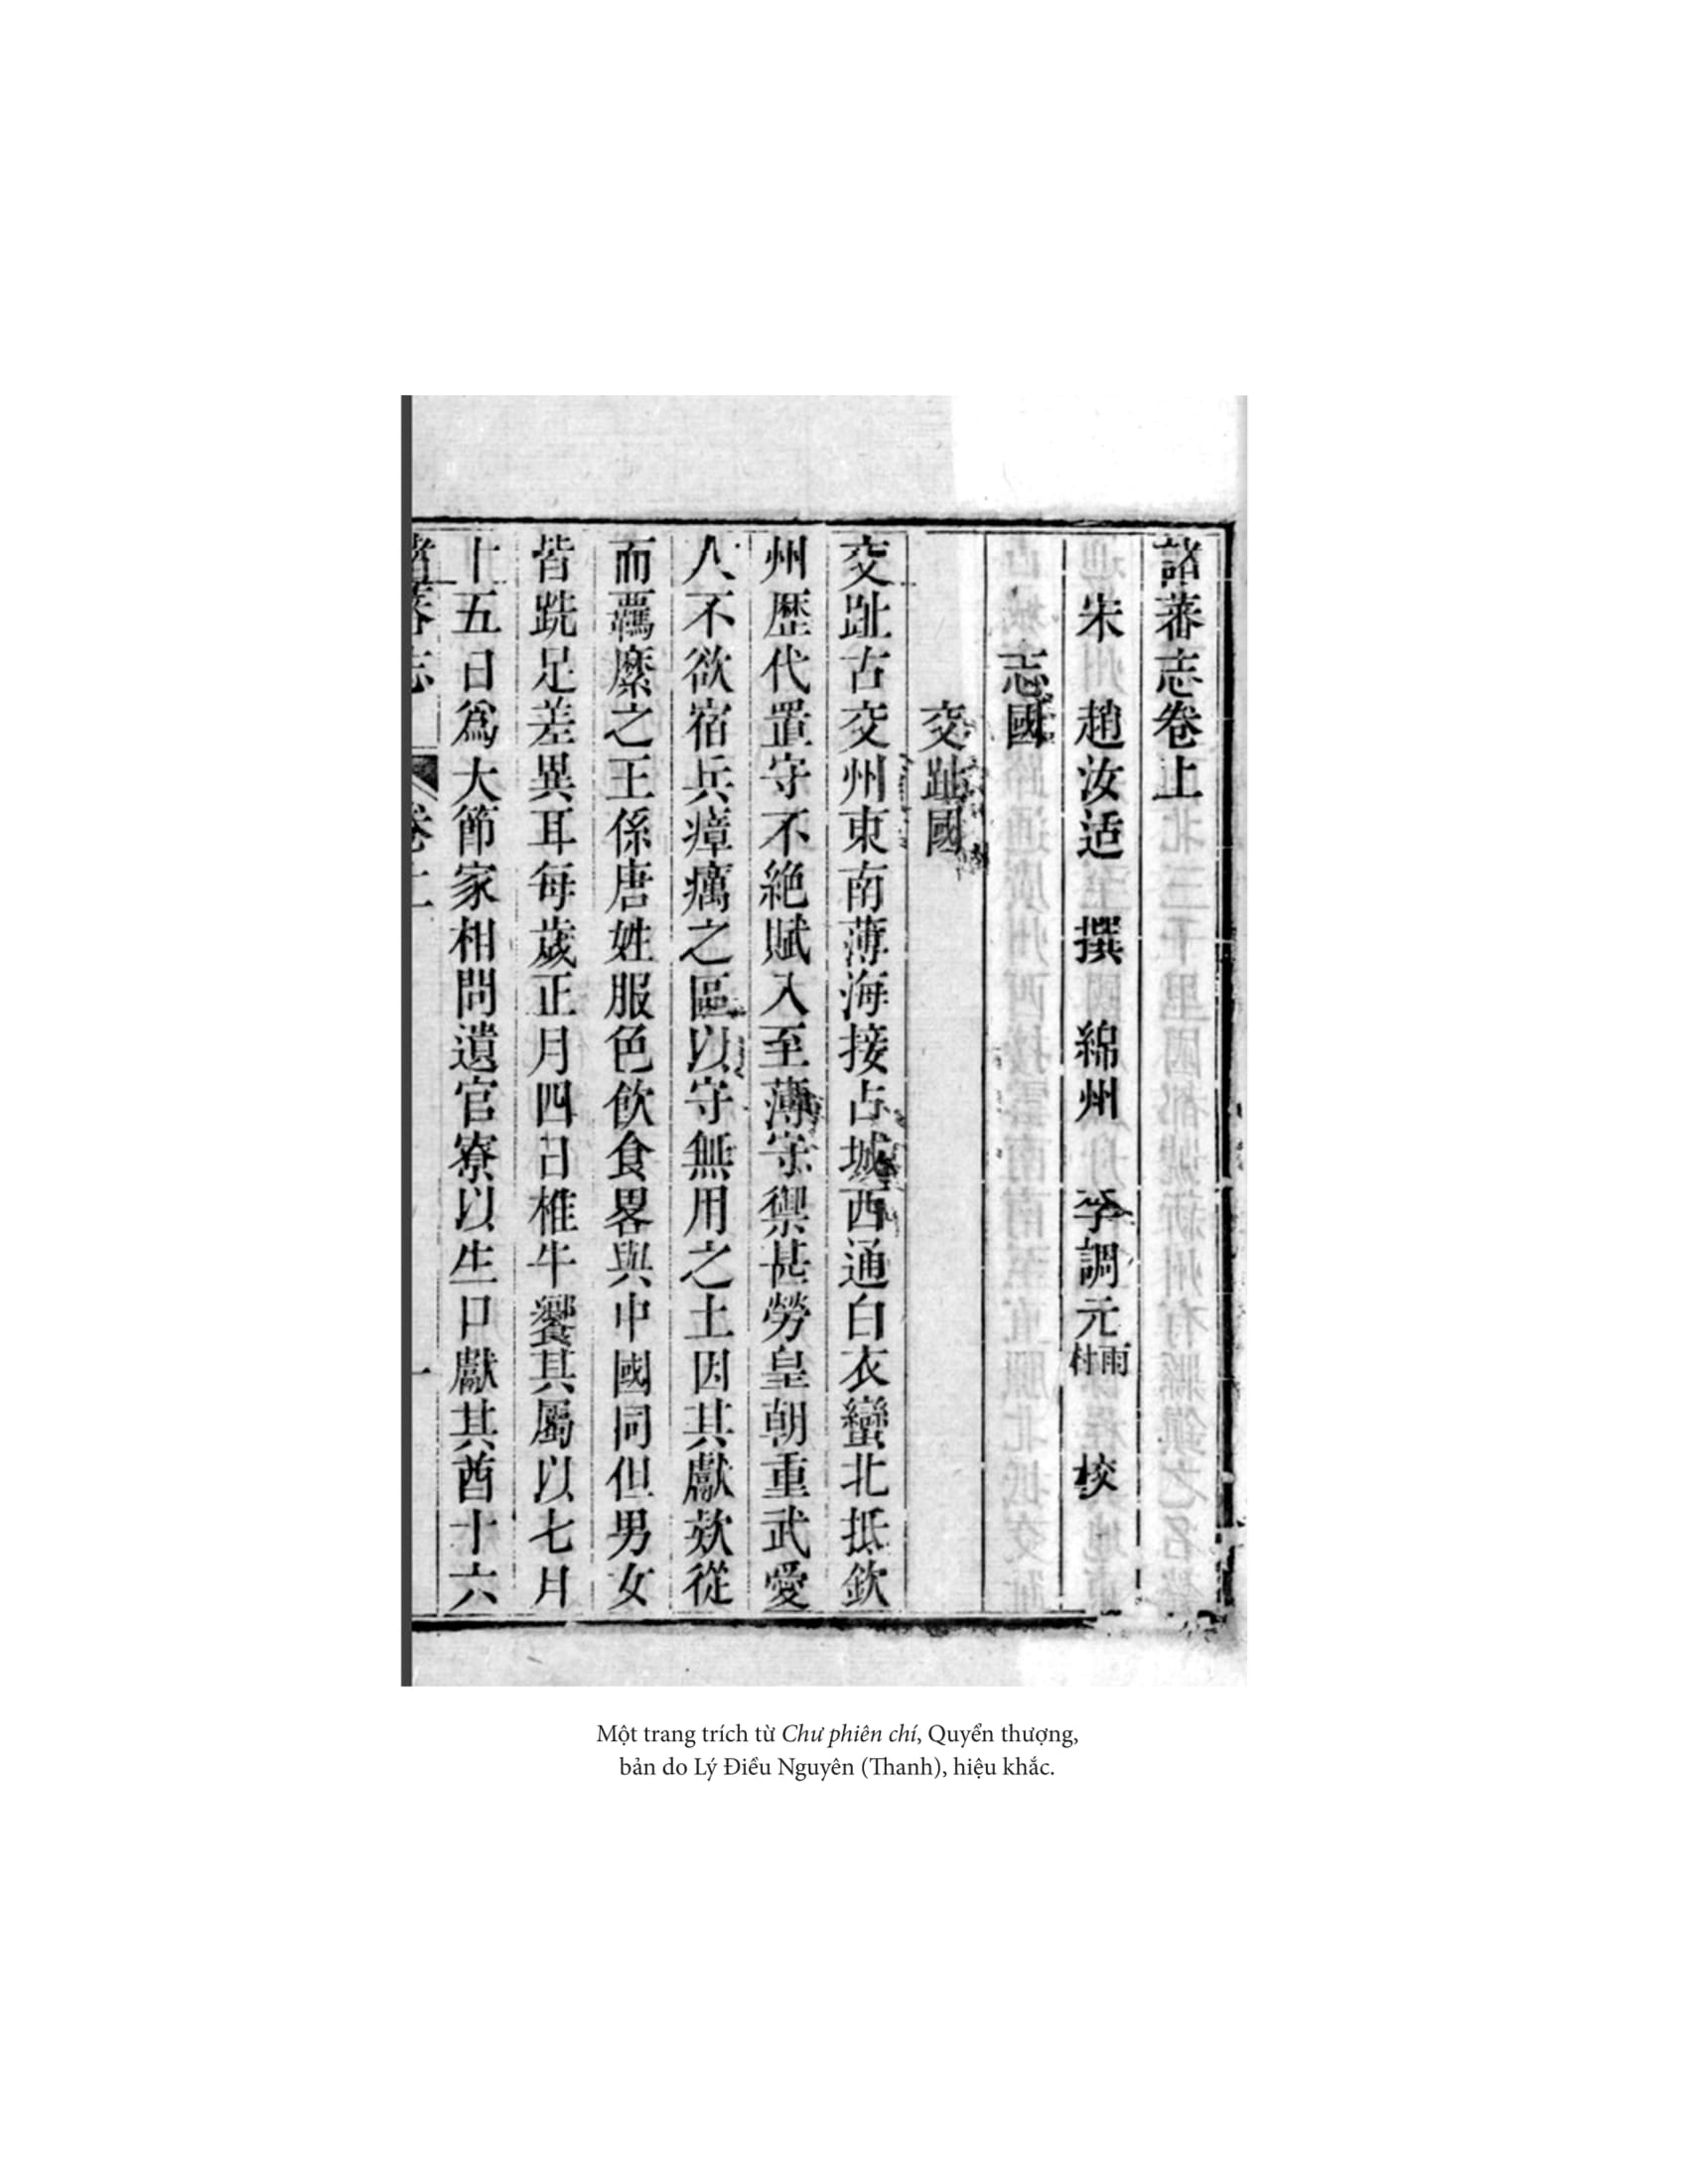 諸蕃志卷上
宋 趙汝适 撰 綿州 李調元 雨村 校
志國
交趾國
交趾古交州東南薄海接占城西通白衣蠻北抵欽
州歷代置守不絶賦入至薄守禦甚勞皇朝重武愛
人不欲宿兵瘴癘之區以守無用之土因其獻欵從
而羈縻之王係唐姓服色飲食畧與中國同但男女
皆跣足差異耳每歲正月四日椎牛饗其屬以七月
十五日爲大節家相問遺官寮以生口獻其酋十六
諸蕃志 卷上 一
Một trang trích từ Chư phiên chí, Quyển thượng,
bản do Lý Điều Nguyên (Thanh), hiệu khắc.